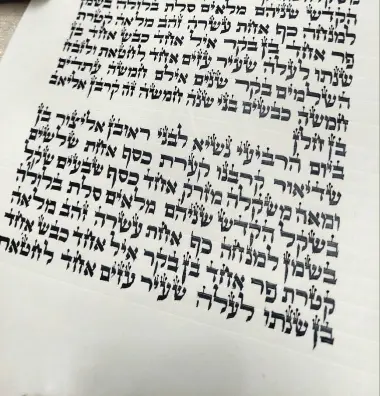 הקדש שניהם מלאים סלת בלולה בשמן
למנחה כף אחת עשרה זהב מלאה קטרת
פר אחד בן בקר איל אחד כבש אחד בן
שנתו לעלה שעיר עזים אחד לחטאת ולזבח
השלמים בקר שנים אילם חמשה עתדים
חמשה כבשים בני שנה חמשה זה קרבן אליאב
בן חלן
ביום הרביעי נשיא לבני ראובן אליצור בן
שדיאור קרבנו קערת כסף אחת שלשים
ומאה משקלה מזרק אחד כסף שבעים שקל
בשקל הקדש שניהם מלאים סלת בלולה
בשמן למנחה כף אחת עשרה זהב מלאה
קטרת פר אחד בן בקר איל אחד כבש אחד
בן שנתו לעלה שעיר עזים אחד לחטאת